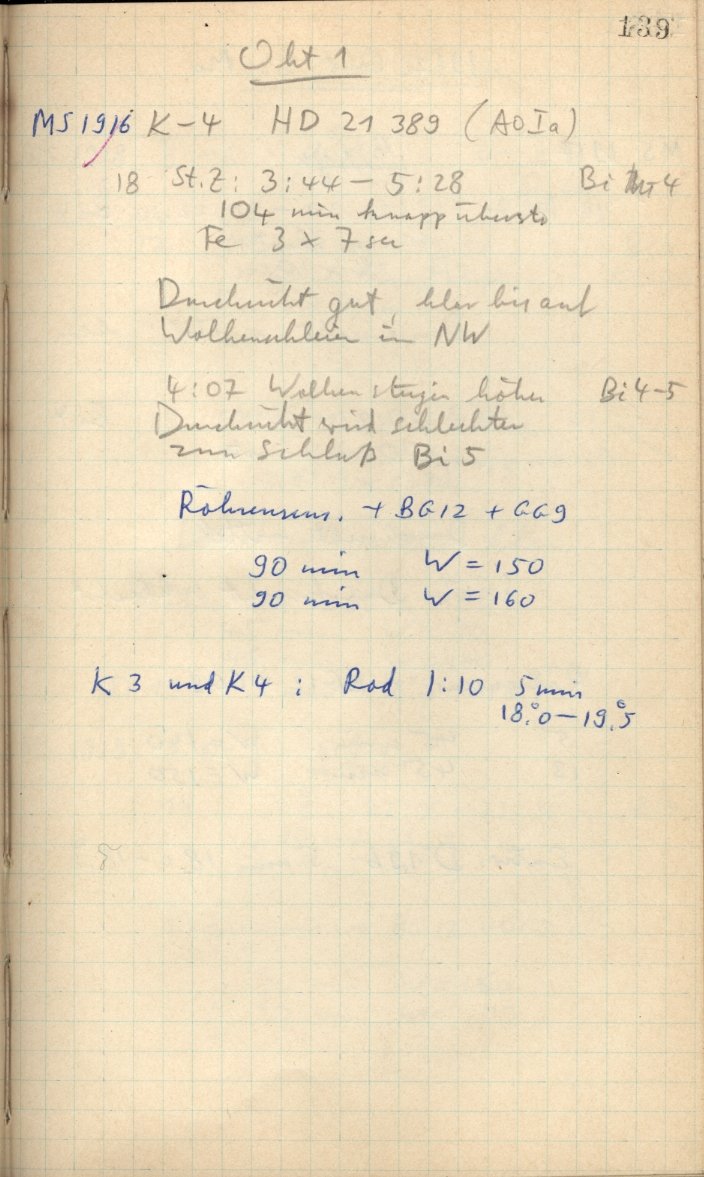 139
Okt 1
MS 1916 K-4 HD 21 389 (A0Ia)
18 St.Z: 3:44 - 5:28 Bi 4
104 min knapp überst.
Fe 3 x 7 sec
Durchsicht gut, klar bis auf
Wolkenschleier in NW
4:07 Wolken steigen höher Bi 4-5
Durchsicht wird schlechter
zum Schluß Bi 5
Röhrensens. + BG12 + GG9
90 min W = 150
90 min W = 160
K 3 und K 4 : Rod 1:10 5 min
18.°0 - 19.°5